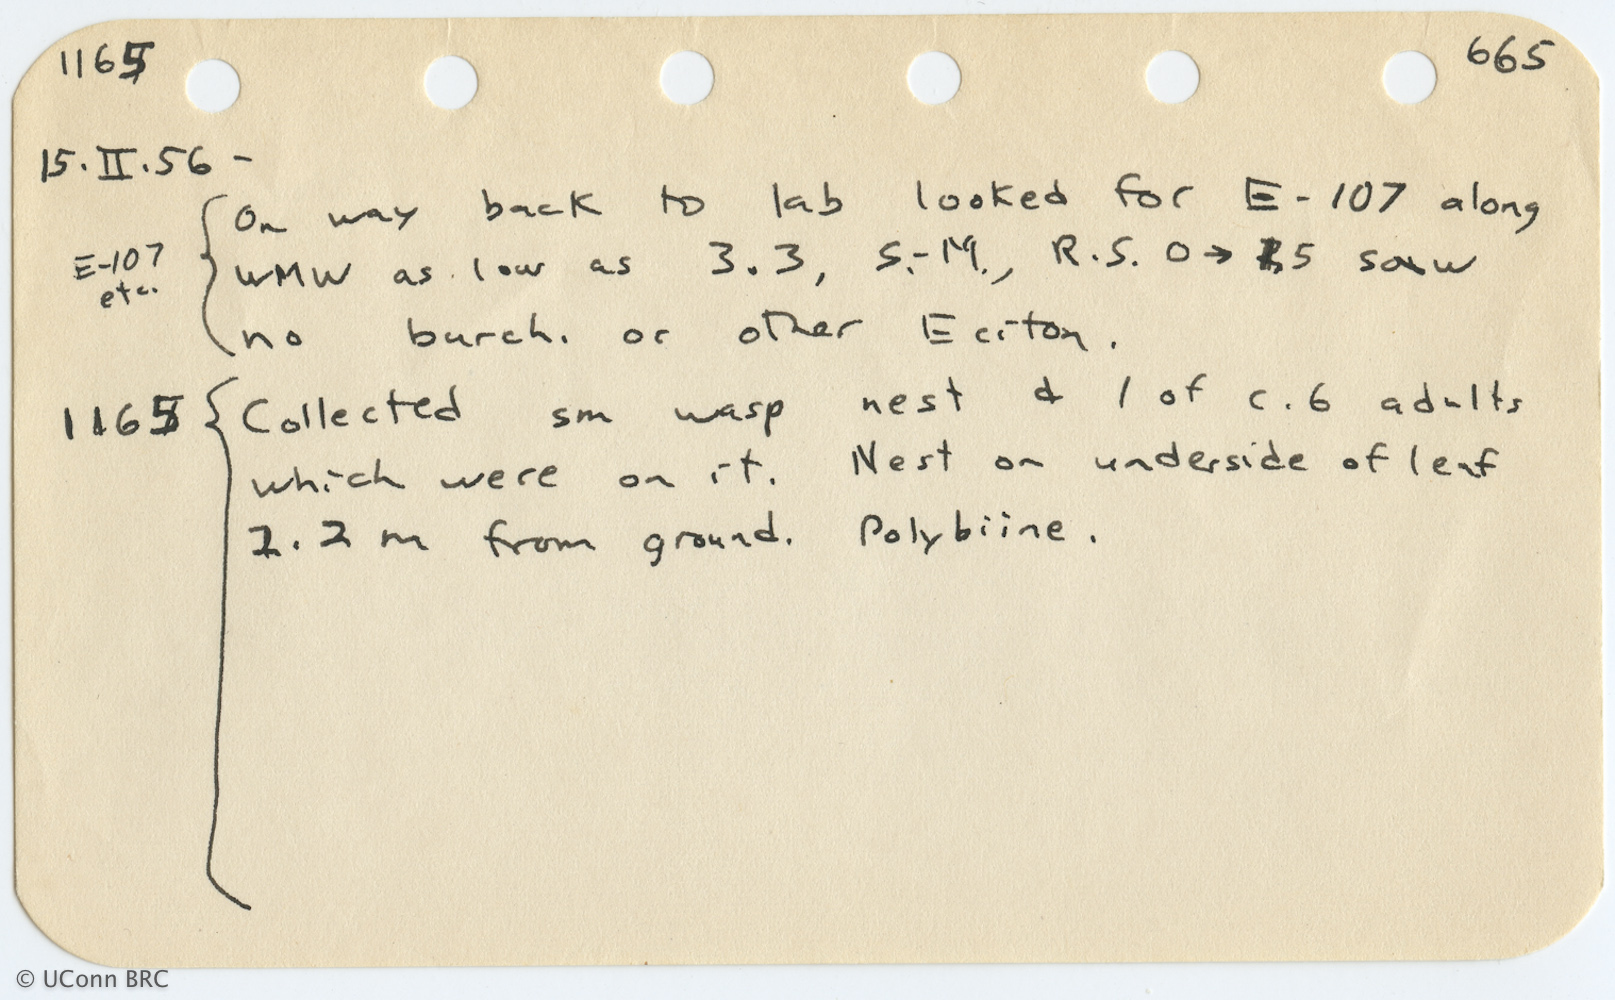 1165 665
15.II.56 -
On way back to lab looked for E-107 along
E-107 etc.
WMW as low as 3.3, S.-M., R.S. 0→5 saw
no burch. or other Eciton.
1165 Collected sm wasp nest & 1 of c.6 adults
which were on it. Nest on underside of leaf
2.2 m from ground. Polybiine.
© UConn BRC